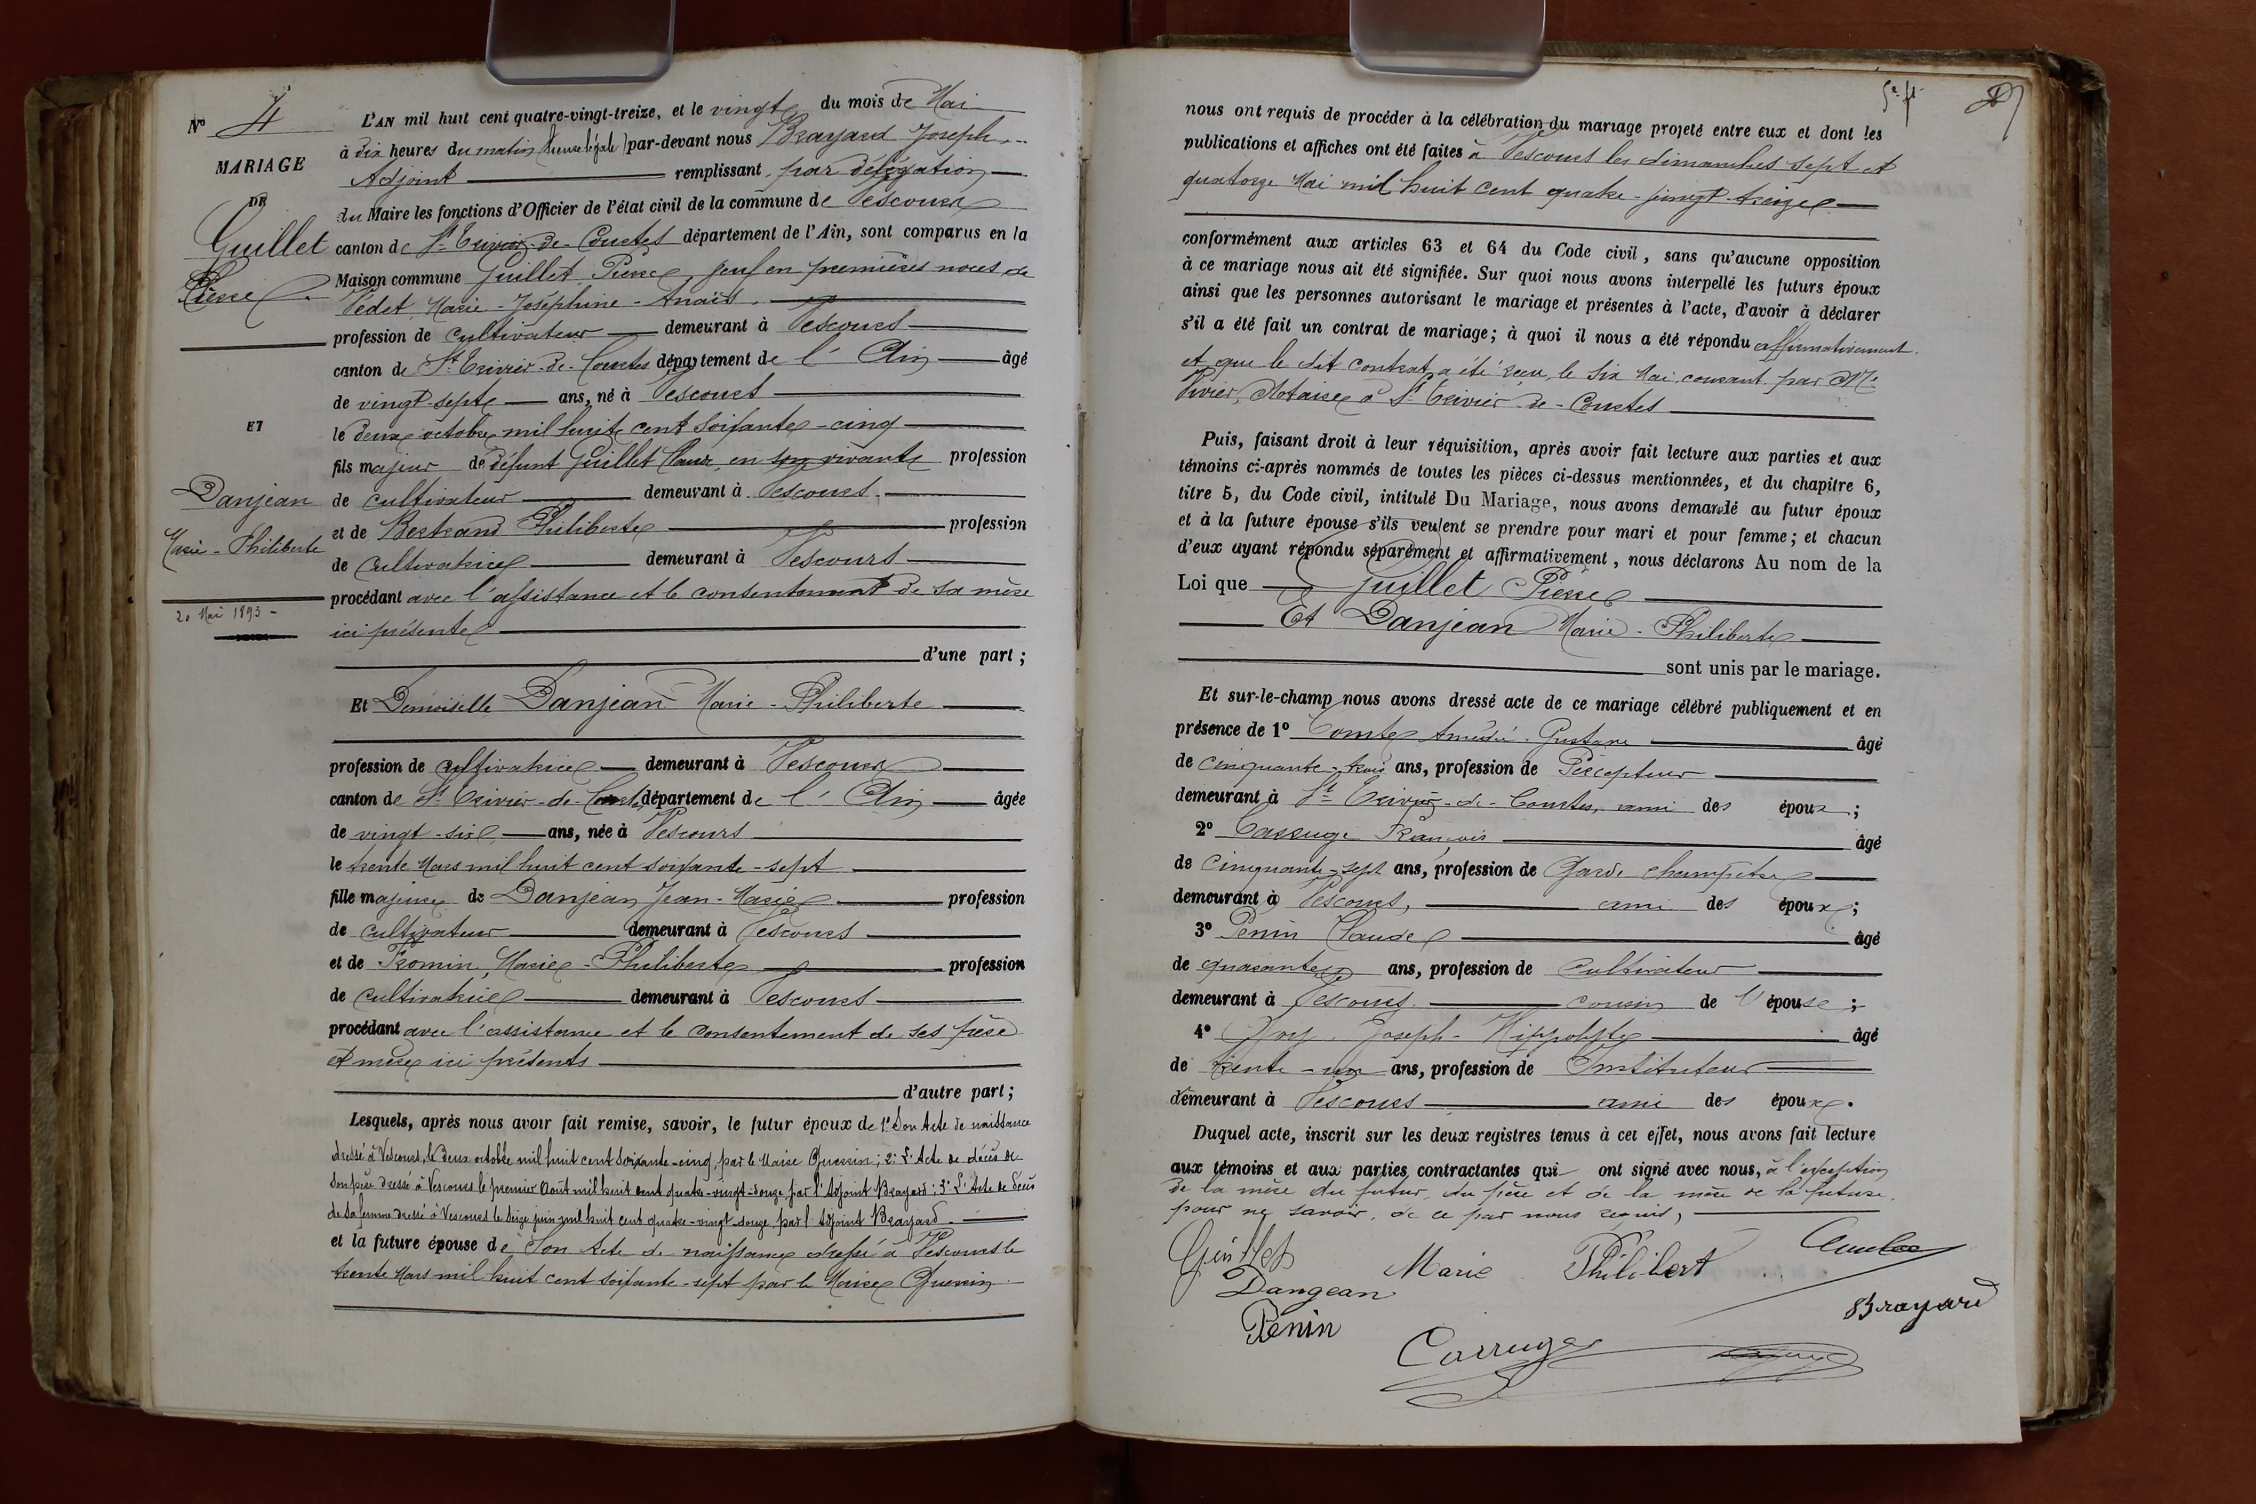 Nº 4
MARIAGE
DE
Guillet
Pierre
ET
Danjean
Marie - Philiberte
20 Mai 1893 -
L'AN mil huit cent quatre-vingt-treize, et le vingt du mois de Mai
à dix heures du matin (heure légale) par-devant nous Brayard Joseph
Adjoint remplissant par délégation
du Maire les fonctions d'Officier de l'état civil de la commune de Vescours
canton de St Trivier-de-Courtes département de l'Ain, sont comparus en la
Maison commune Guillet Pierre, veuf en premières noces de
Védet Marie - Joséphine - Anaïs
profession de cultivateur demeurant à Vescours
canton de St Trivier-de-Courtes département de l'Ain âgé
de vingt-sept ans, né à Vescours
le deux octobre mil huit cent soixante-cinq
fils majeur de défunt Guillet Claude, en son vivant profession
de cultivateur demeurant à Vescours
et de Bertrand Philiberte profession
de cultivatrice demeurant à Vescours
procédant avec l'assistance et le consentement de sa mère
ici présente
d'une part ;
Et Demoiselle Danjean Marie - Philiberte
profession de cultivatrice demeurant à Vescours
canton de St Trivier-de-Courtes département de l'Ain âgée
de vingt-six ans, née à Vescours
le trente Mars mil huit cent soixante-sept
fille majeure de Danjean Jean-Marie profession
de cultivateur demeurant à Vescours
et de Fromin, Marie - Philiberte profession
de cultivatrice demeurant à Vescours
procédant avec l'assistance et le consentement de ses père
et mère ici présents
d'autre part ;
Lesquels, après nous avoir fait remise, savoir, le futur époux de 1º Son Acte de naissance
dressé à Vescours, le deux octobre mil huit cent soixante-cinq, par le Maire Guerrin ; 2º L'Acte de décès de
son père dressé à Vescours le premier Août mil huit cent quatre-vingt-douze par l'Adjoint Brayard ; 3º L'Acte de décès
de sa femme dressé à Vescours le seize juin mil huit cent quatre-vingt-douze par l'Adjoint Brayard.
et la future épouse de Son Acte de naissance dressé à Vescours le
trente Mars mil huit cent soixante-sept par le Maire Guerrin
nous ont requis de procéder à la célébration du mariage projeté entre eux et dont les
publications et affiches ont été faites à Vescours les dimanches sept et
quatorze Mai mil huit cent quatre-vingt-treize
conformément aux articles 63 et 64 du Code civil, sans qu'aucune opposition
à ce mariage nous ait été signifiée. Sur quoi nous avons interpellé les futurs époux
ainsi que les personnes autorisant le mariage et présentes à l'acte, d'avoir à déclarer
s'il a été fait un contrat de mariage ; à quoi il nous a été répondu affirmativement
et que le dit contrat a été reçu le six Mai courant par Me
Vivier, Notaire à St Trivier-de-Courtes
Puis, faisant droit à leur réquisition, après avoir fait lecture aux parties et aux
témoins ci-après nommés de toutes les pièces ci-dessus mentionnées, et du chapitre 6,
titre 5, du Code civil, intitulé Du Mariage, nous avons demandé au futur époux
et à la future épouse s'ils veulent se prendre pour mari et pour femme ; et chacun
d'eux ayant répondu séparément et affirmativement, nous déclarons Au nom de la
Loi que Guillet Pierre
Et Danjean Marie - Philiberte
sont unis par le mariage.
Et sur-le-champ nous avons dressé acte de ce mariage célébré publiquement et en
présence de 1º Comte Amédé - Gustave âgé
de cinquante-trois ans, profession de Percepteur
demeurant à St Trivier-de-Courtes, ami des époux ;
2º Carruge François âgé
de cinquante-sept ans, profession de Garde champêtre
demeurant à Vescours, ami des époux ;
3º Penin Claude âgé
de quarante ans, profession de Cultivateur
demeurant à Vescours cousin de l'épouse ;
4º Joseph - Hippolyte âgé
de trente-un ans, profession de Instituteur
demeurant à Vescours ami des époux.
Duquel acte, inscrit sur les deux registres tenus à cet effet, nous avons fait lecture
aux témoins et aux parties contractantes qui ont signé avec nous, à l'exception
de la mère du futur, du père et de la mère de la future,
pour ne savoir, de ce par nous requis,
Guillet
Dangean Marie Philibert
Brayard
Penin
Carruge